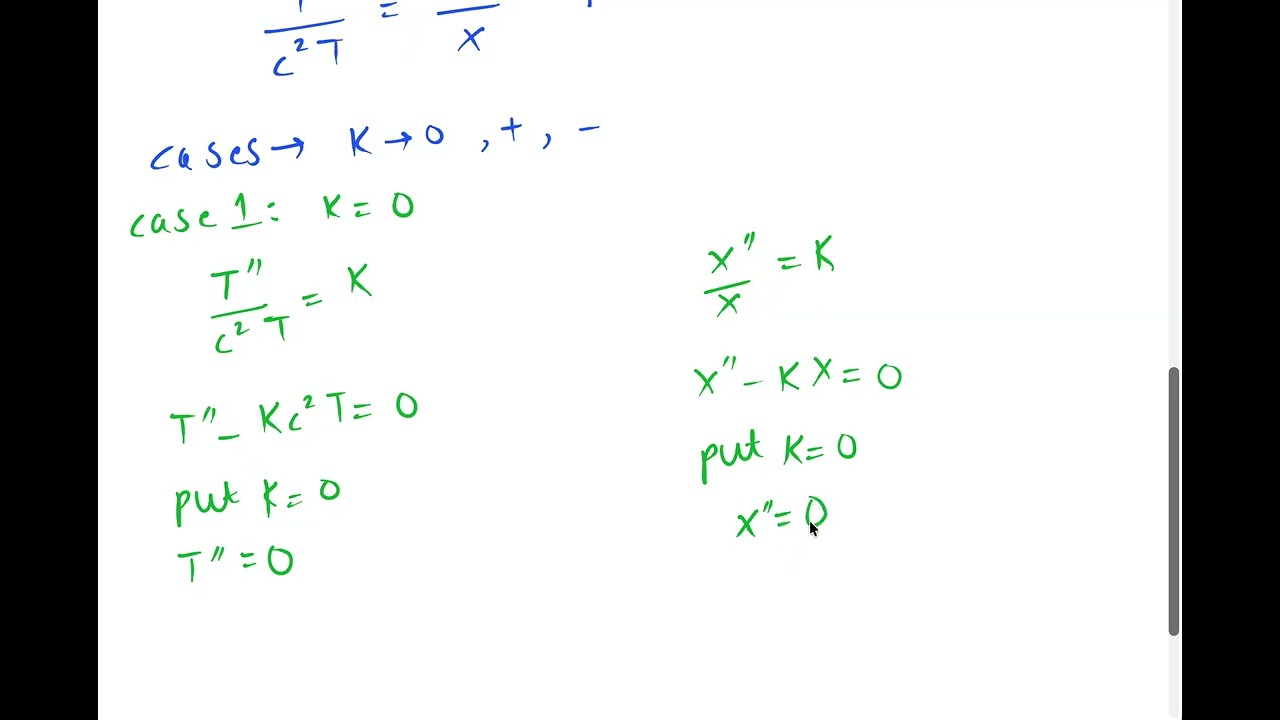 c²T = X
cases → K → 0 , + , −
case 1: K = 0
T″/c²T = K
T″ − Kc²T = 0
put K = 0
T″ = 0
X″/X = K
X″ − KX = 0
put K = 0
X″ = 0